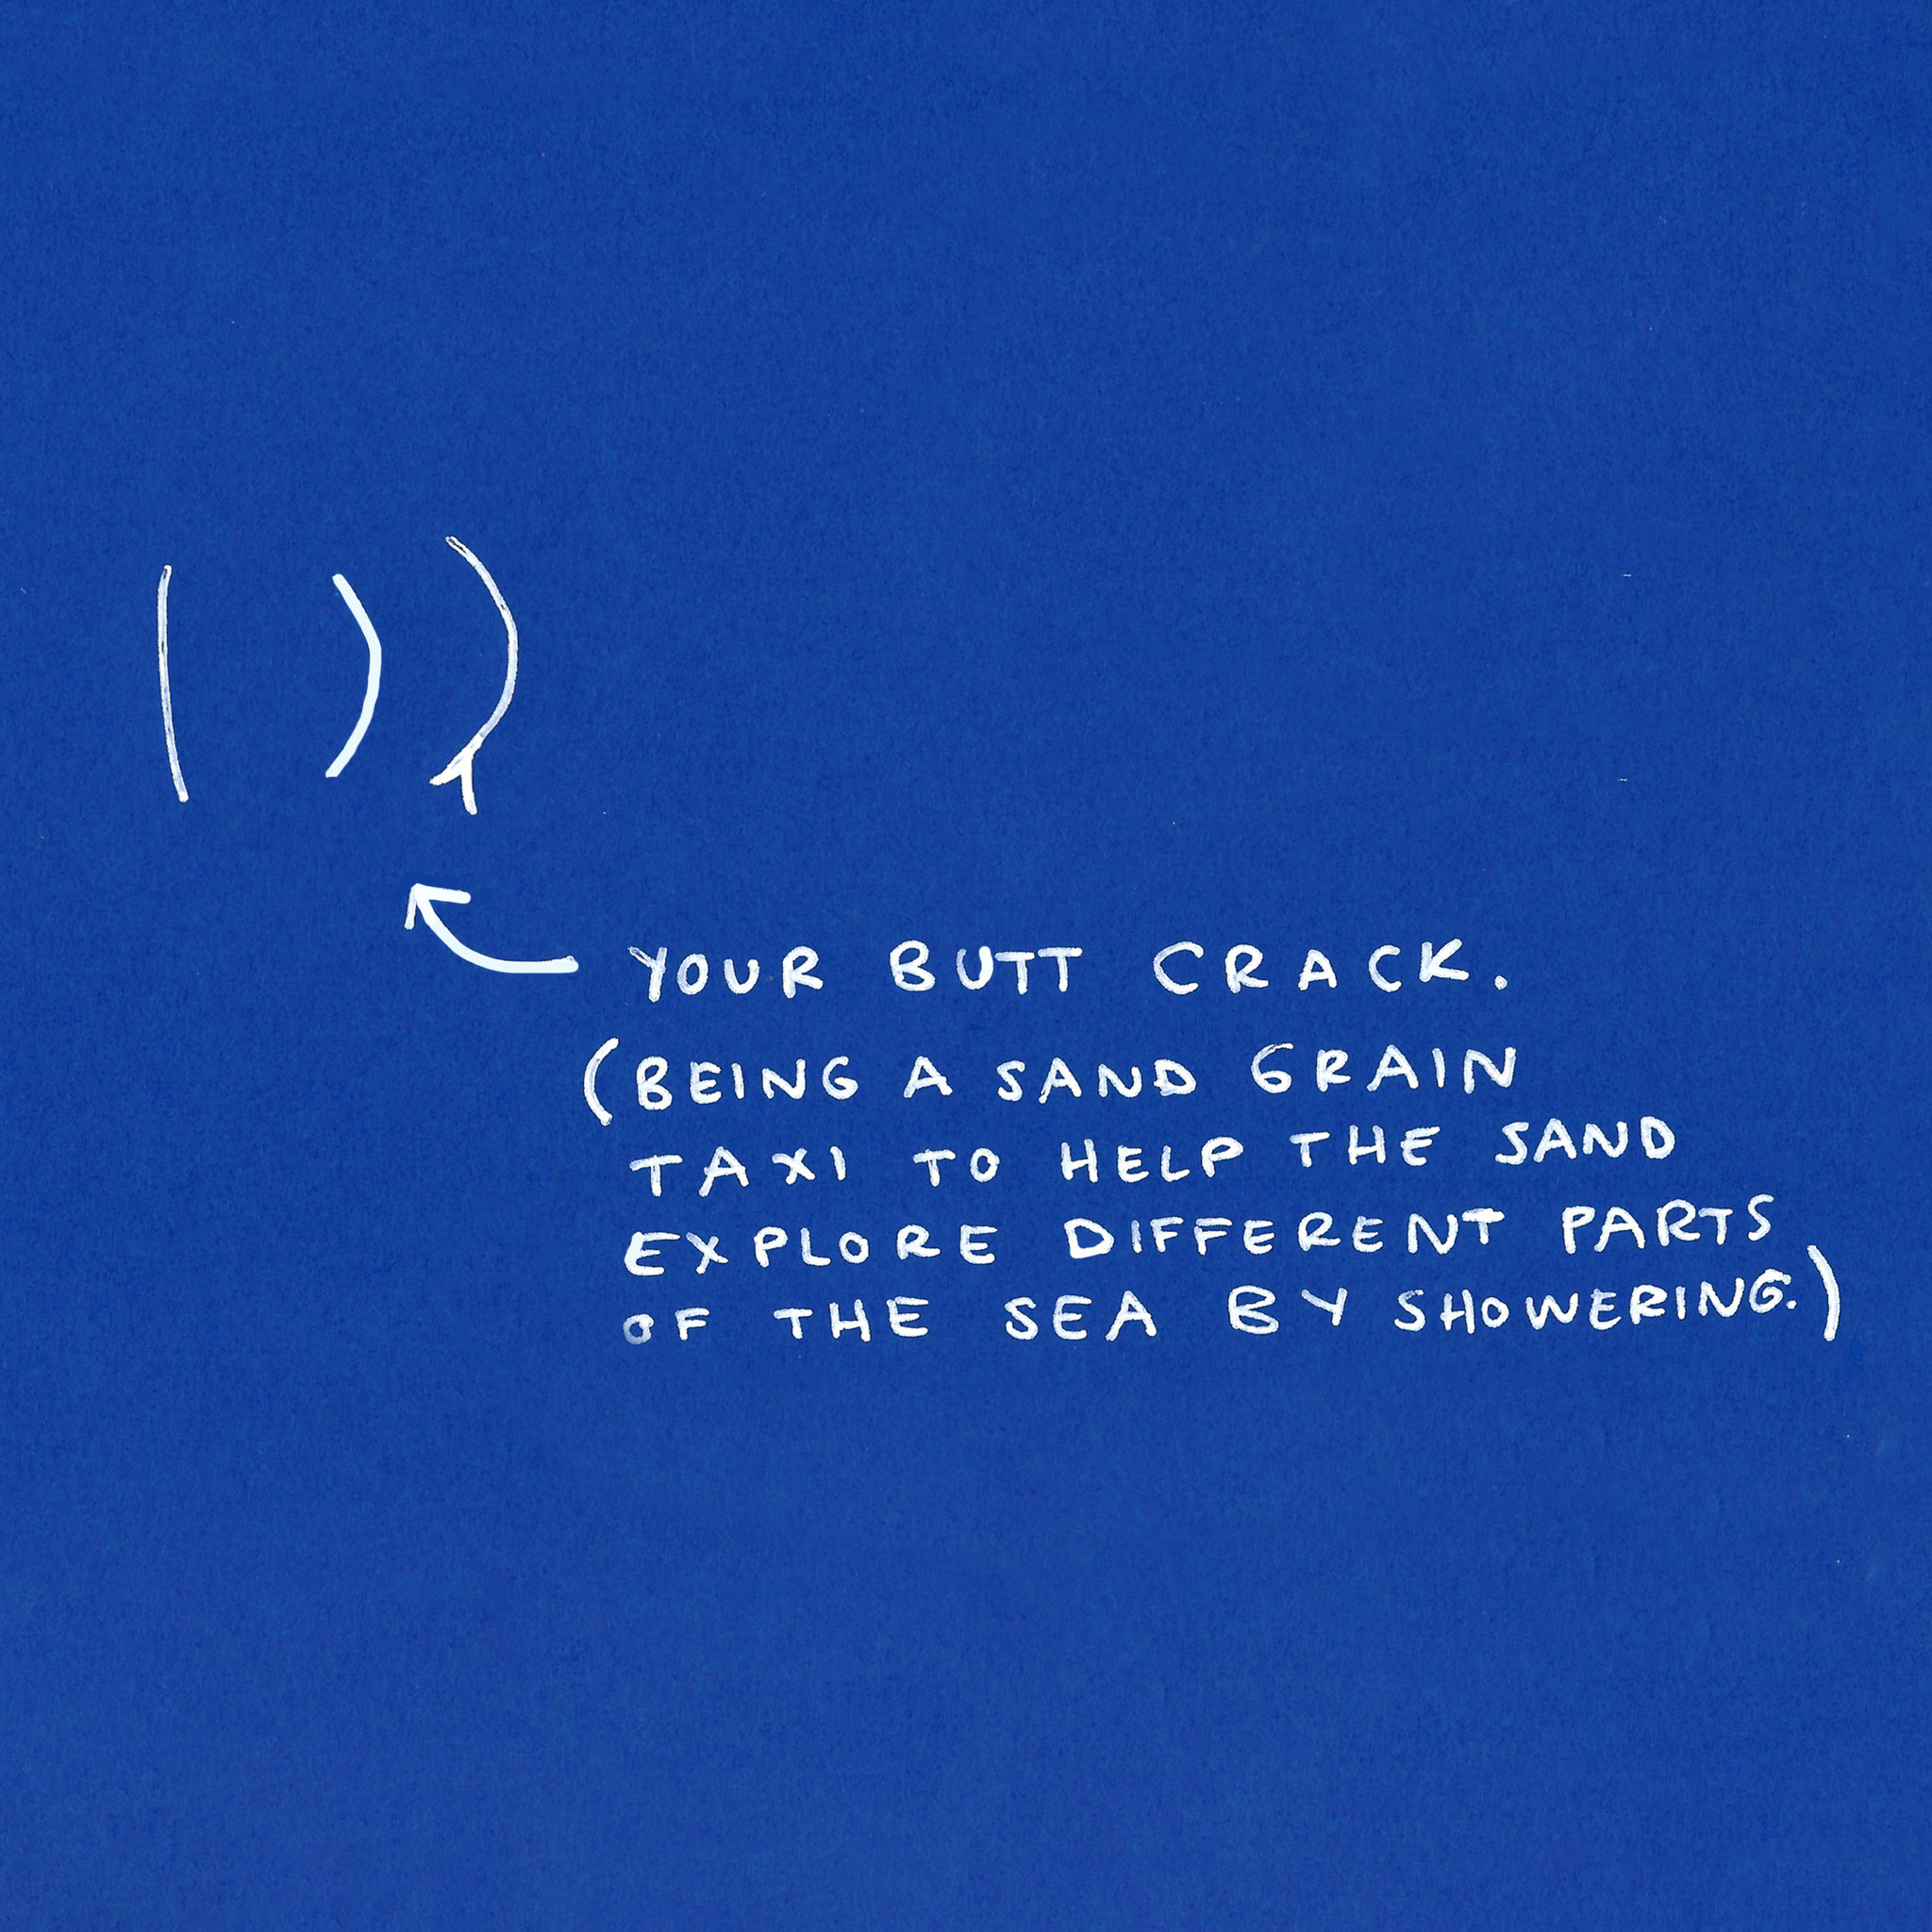 YOUR BUTT CRACK.
(BEING A SAND GRAIN
TAXI TO HELP THE SAND
EXPLORE DIFFERENT PARTS
OF THE SEA BY SHOWERING.)